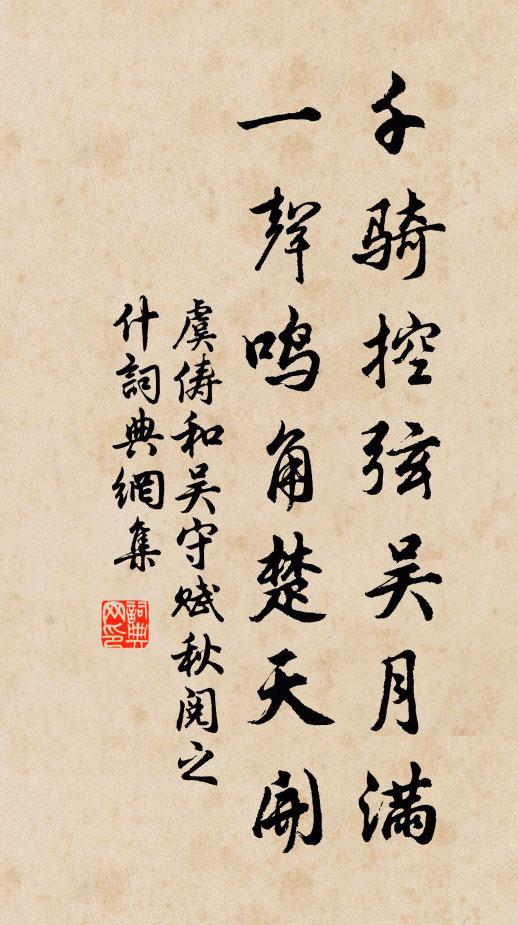 千騎控弦吴月满
一聲鳴角楚天開
虞儔和吴守赋秋阅之
什詞典網集
詞典网印